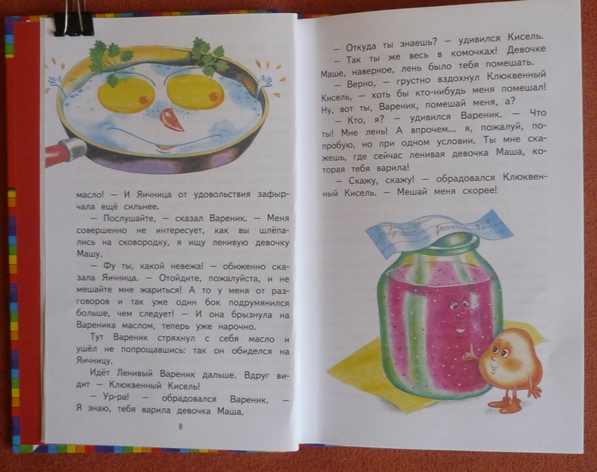 масло! — И Яичница от удовольствия зафыр-
чала ещё сильнее.
— Послушайте, — сказал Вареник. — Меня
совершенно не интересует, как вы шлёпа-
лись на сковородку, я ищу ленивую девочку
Машу.
— Фу ты, какой невежа! — обиженно ска-
зала Яичница. — Отойдите, пожалуйста, и не
мешайте мне жариться! А то у меня от раз-
говоров и так уже один бок подрумянился
больше, чем следует! — И она брызнула на
Вареника маслом, теперь уже нарочно.
Тут Вареник стряхнул с себя масло и
ушёл не попрощавшись: так он обиделся на
Яичницу.
Идёт Ленивый Вареник дальше. Вдруг ви-
дит — Клюквенный Кисель!
— Ур-ра! — обрадовался Вареник. —
Я знаю, тебя варила девочка Маша.
8
— Откуда ты знаешь? — удивился Кисель.
— Так ты же весь в комочках! Девочке
Маше, наверное, лень было тебя помешать.
— Верно, — грустно вздохнул Клюквенный
Кисель, — хоть бы кто-нибудь меня помешал!
Ну, вот ты, Вареник, помешай меня, а?
— Кто, я? — удивился Вареник. — Что
ты! Мне лень! А впрочем... я, пожалуй, по-
пробую, но при одном условии. Ты мне ска-
жешь, где сейчас ленивая девочка Маша, ко-
торая тебя варила!
— Скажу, скажу! — обрадовался Клюквен-
ный Кисель. — Мешай меня скорее!